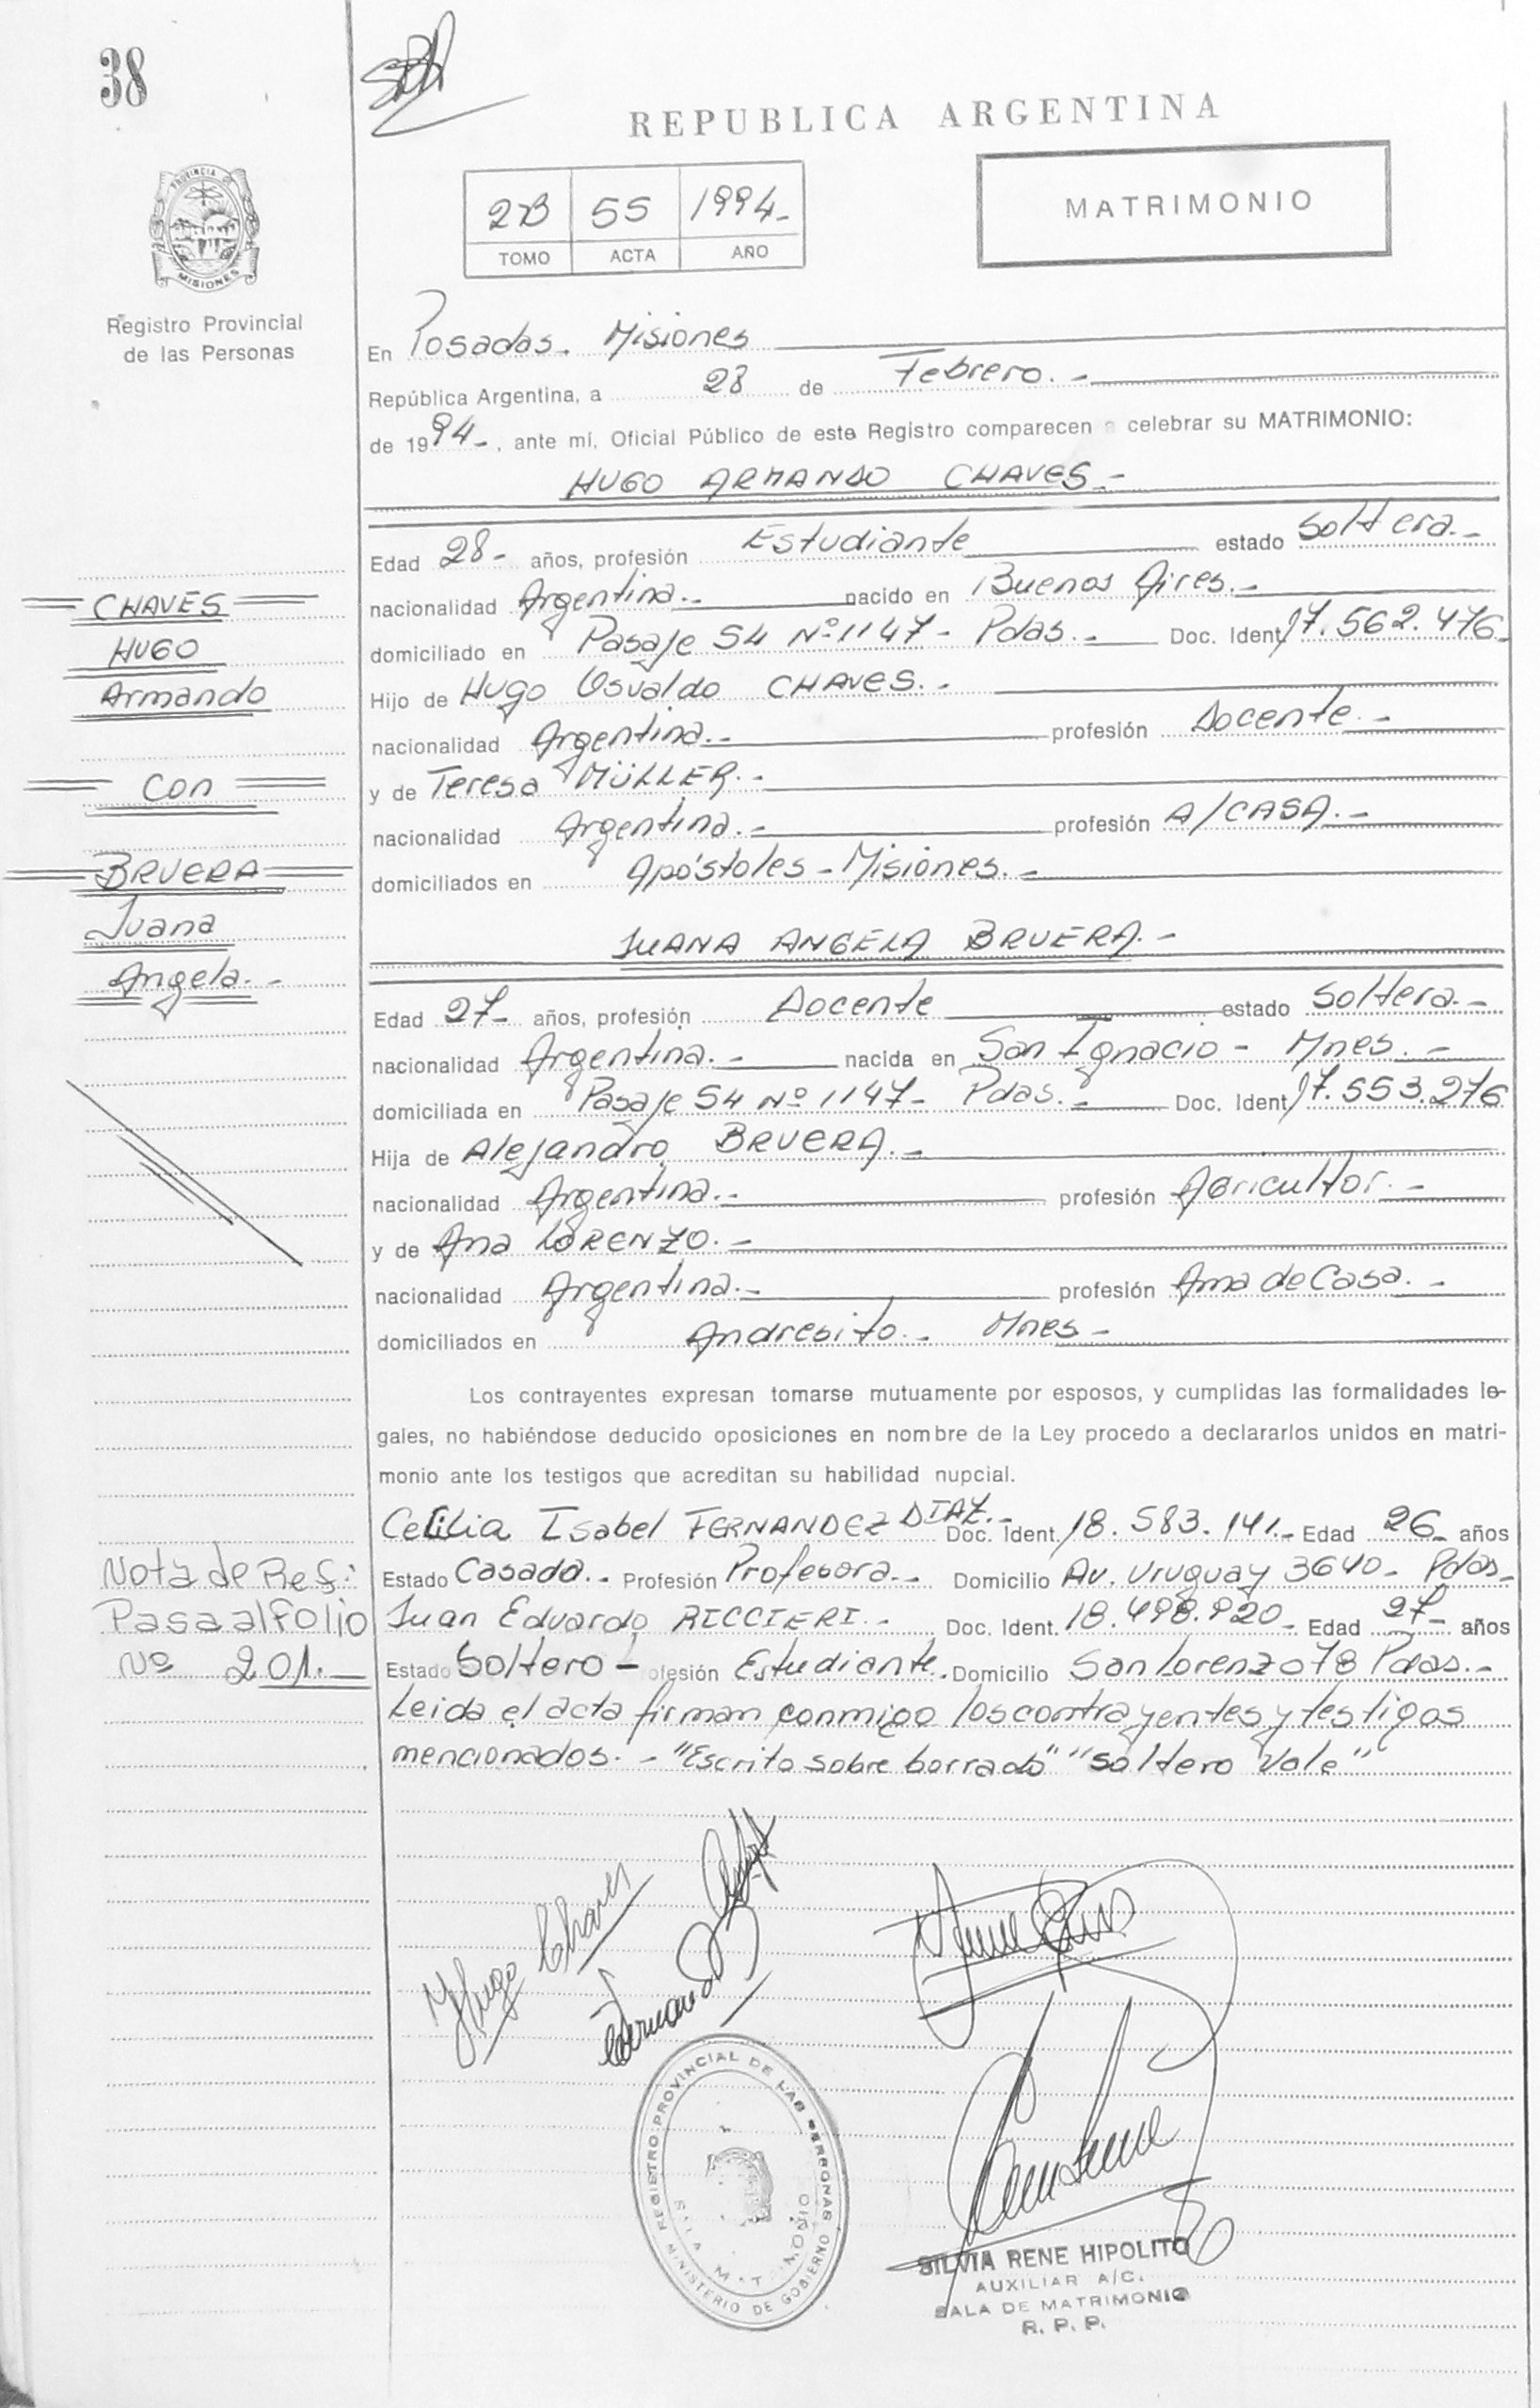 38
REPUBLICA ARGENTINA
2B 55 1994.-
TOMO ACTA AÑO
MATRIMONIO
PROVINCIA
MISIONES
Registro Provincial
de las Personas
En Posadas. Misiones
República Argentina, a 28 de Febrero.-
de 1994.-, ante mí, Oficial Público de este Registro comparecen a celebrar su MATRIMONIO:
HUGO ARMANDO CHAVES.-
Edad 28- años, profesión Estudiante estado Soltera.-
nacionalidad Argentina.- nacido en Buenos Aires.-
domiciliado en Pasaje 54 Nº 1147- Pdas.- Doc. Ident. 17.562.476
Hijo de Hugo Osvaldo CHAVES.-
nacionalidad Argentina.- profesión Docente.-
y de Teresa MÜLLER.-
nacionalidad Argentina.- profesión A/CASA.-
domiciliados en Apóstoles-Misiones.-
JUANA ANGELA BRUERA.-
Edad 27- años, profesión Docente estado Soltera.-
nacionalidad Argentina.- nacida en San Ignacio- Mnes.-
domiciliada en Pasaje 54 Nº 1147- Pdas.- Doc. Ident. 17.553.276
Hija de Alejandro BRUERA.-
nacionalidad Argentina.- profesión Agricultor.-
y de Ana LORENZO.-
nacionalidad Argentina.- profesión Ama de Casa.-
domiciliados en Andresito.- Mnes-
CHAVES
HUGO
Armando
Con
BRUERA
Juana
Angela.-
Los contrayentes expresan tomarse mutuamente por esposos, y cumplidas las formalidades le-
gales, no habiéndose deducido oposiciones en nombre de la Ley procedo a declararlos unidos en matri-
monio ante los testigos que acreditan su habilidad nupcial.
Cecilia Isabel FERNANDEZ DIAZ.- Doc. Ident. 18.583.141.- Edad 26- años
Estado Casada.- Profesión Profesora.- Domicilio Av. Uruguay 3640- Pdas-
Juan Eduardo RICCIERI.- Doc. Ident. 18.498.920- Edad 27- años
Estado Soltero- ofesión Estudiante. Domicilio San Lorenzo 78 Pdas.-
Leida el acta firman conmigo los contrayentes y testigos
mencionados.- "Escrito sobre borrado" "soltero Vale"
Nota de Ref:
Pasa al Folio
Nº 201.-
Hugo Chaves
REGISTRO PROVINCIAL DE LAS PERSONAS
MINISTERIO DE GOBIERNO
SALA MATRIMONIO
SILVIA RENE HIPOLITO
AUXILIAR A/C.
SALA DE MATRIMONIO
R. P. P.